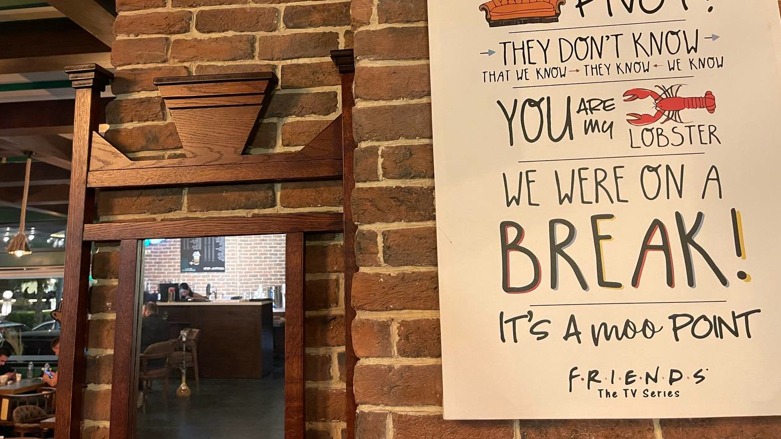 PIVOT!
THEY DON'T KNOW
THAT WE KNOW THEY KNOW WE KNOW
YOU ARE my LOBSTER
WE WERE ON A
BREAK!
IT'S A moo POINT
F·R·I·E·N·D·S
The TV Series